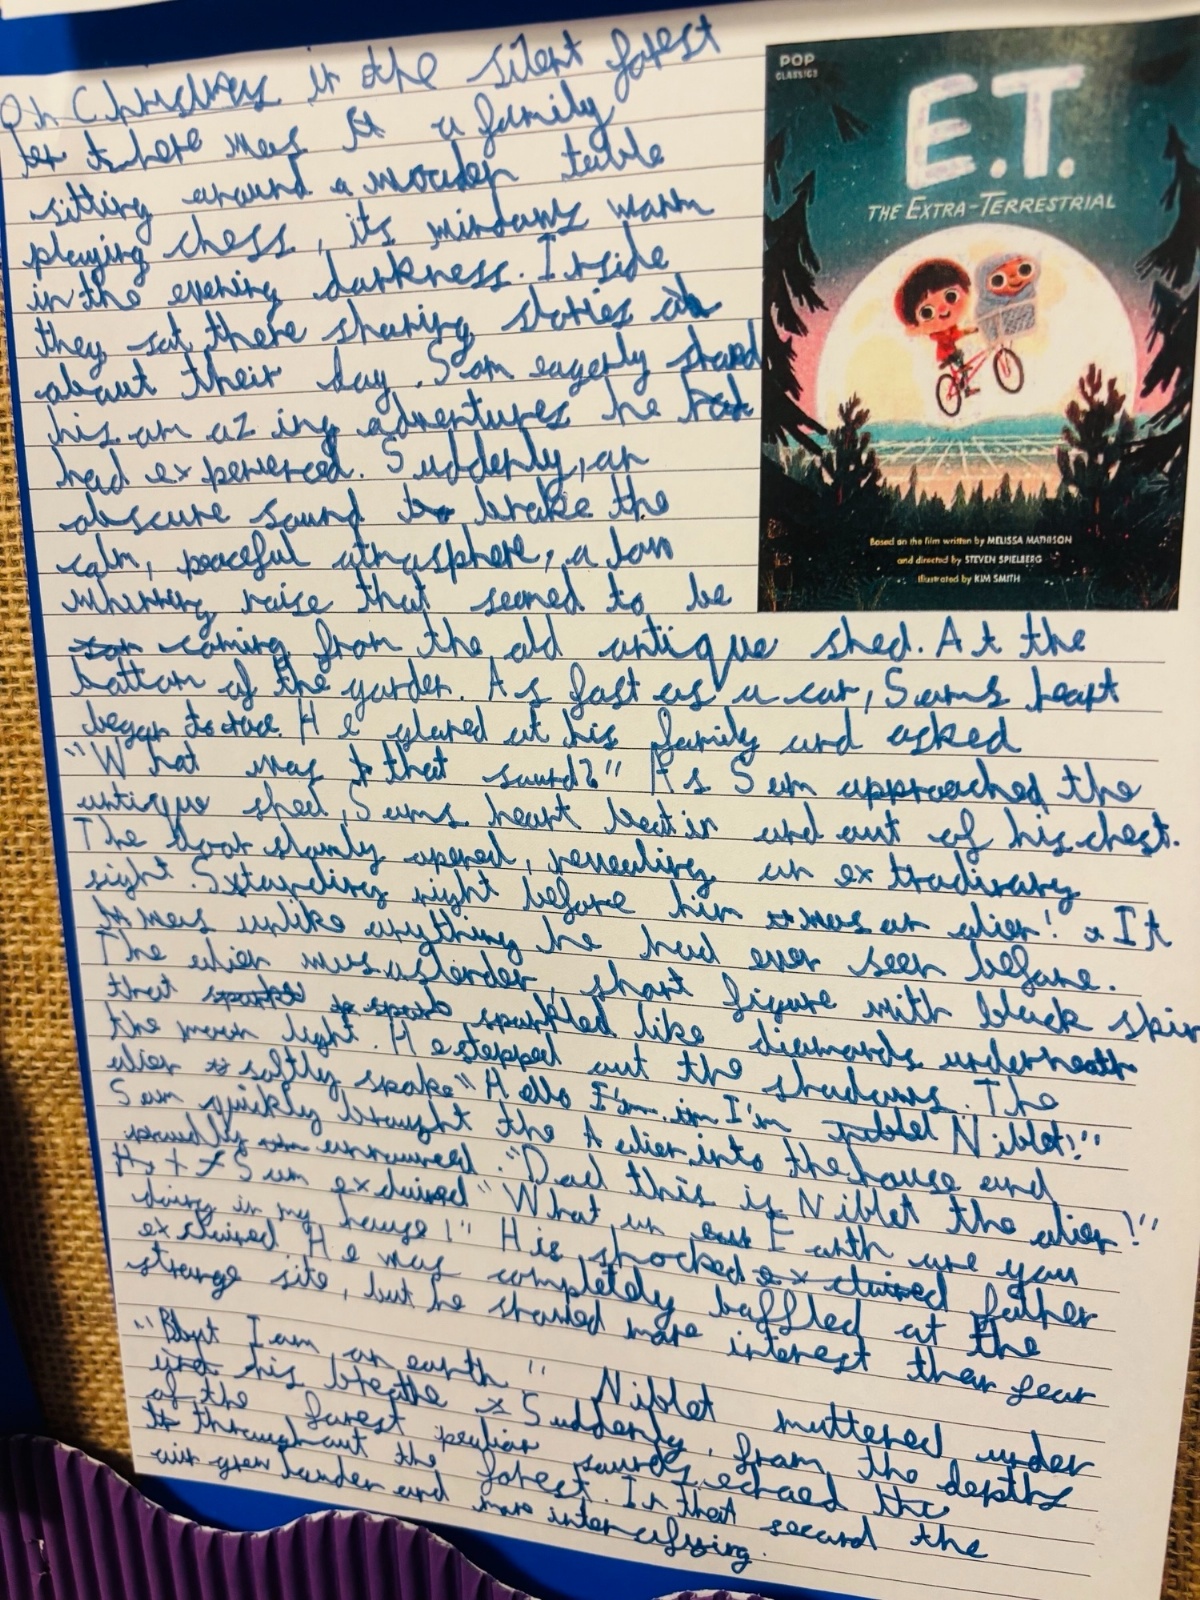 On Christmas in the silent forest
there was a family
sitting around a wooden table
playing chess, its windows warm
in the evening darkness. Inside
they sat there sharing stories
about their day. Sam eagerly shared
his amazing adventures he
had experenced. Suddenly, an
obscure sound broke the
calm, peaceful atmosphere, a low
whirring noise that seemed to be
coming from the old antique shed. At the
bottom of the garden. As fast as a car, Sams heart
began to race. He glared at his family and asked
"What was that sound?" As Sam approached the
antique shed, Sams heart beat in and out of his chest.
The door slowly opened, revealing an extradinary
sight. Standing right before him was an alien! It
was unlike anything he had ever seen before.
The alien was a slender, short figure with black skin
that sparkled like diamonds underneath
the moon light. He stepped out the shadows. The
alien softly spoke "Hello I'm I'm Niblet!"
Sam quickly brought the Alien into the house and
proudly announced. "Dad this is Niblet the alien!"
Sam exclaimed "What on Earth are you
doing in my house!" His shocked father
exclaimed. He was completely baffled at the
strange site, but he showed more interest then fear
I am on earth" Niblet muttered under
his breathe Suddenly, from the depths
of the forest peculiar sounds echoed
throughout the forest. In that second the
air grew louder and more intensifying.
POP
CLASSICS
E.T.
THE EXTRA-TERRESTRIAL
Based on the film written by MELISSA MATHISON
and directed by STEVEN SPIELBERG
Illustrated by KIM SMITH